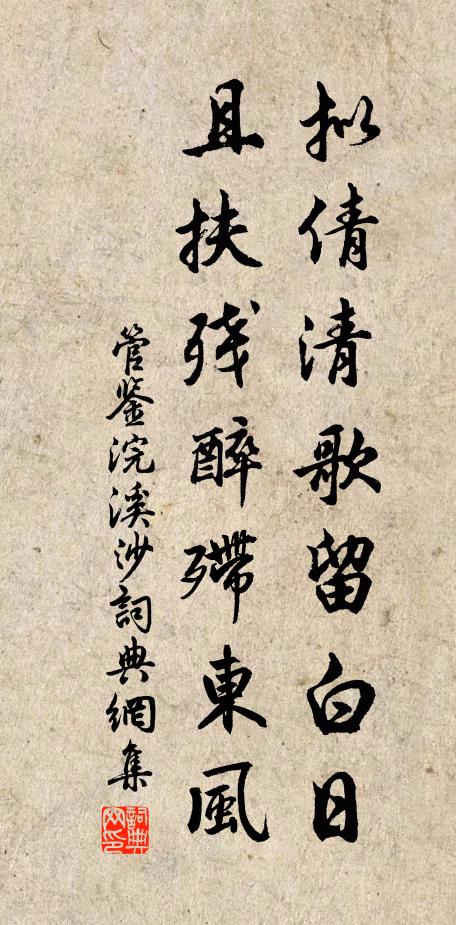 拟倩清歌留白日
且扶残醉殢東風
管鉴浣溪沙詞典網集
詞典网印